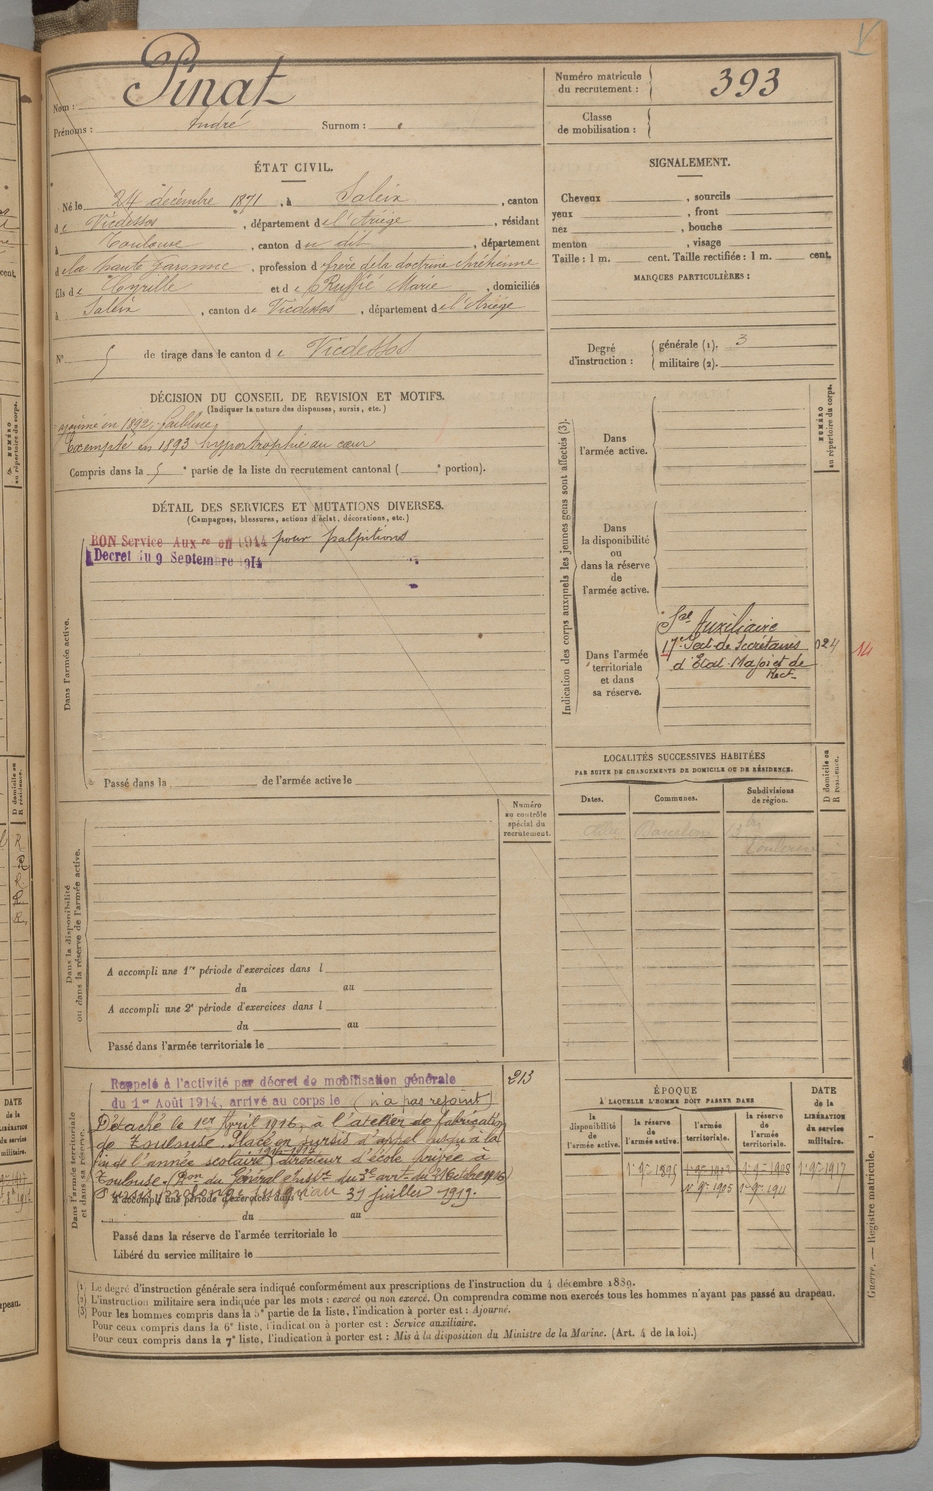 Pinat
Nom :
Prénoms : André Surnom :
Numéro matricule du recrutement : 393
Classe de mobilisation :
ÉTAT CIVIL.
Né le 24 décembre 1871, à Saleix, canton
de Vicdessos, département de l'Ariège, résidant
à Toulouse, canton du dit, département
de la haute Garonne, profession de frère de la doctrine chrétienne
fils de Cyrille et de Ruffié Marie, domiciliés
à Saleix, canton de Vicdessos, département de l'Ariège
N° 5 de tirage dans le canton de Vicdessos
SIGNALEMENT.
Cheveux , sourcils
yeux , front
nez , bouche
menton , visage
Taille : 1 m. cent. Taille rectifiée : 1 m. cent.
MARQUES PARTICULIÈRES :
Degré d'instruction : générale (1). 3
militaire (2).
DÉCISION DU CONSEIL DE REVISION ET MOTIFS.
(Indiquer la nature des dispenses, sursis, etc.)
ajourné en 1892, faiblesse
Exempté en 1893 hypertrophie du cœur
Compris dans la 5e partie de la liste du recrutement cantonal ( e portion).
DÉTAIL DES SERVICES ET MUTATIONS DIVERSES.
(Campagnes, blessures, actions d'éclat, décorations, etc.)
BON Service Auxre en 1914 pour palpitions
Décret du 9 Septembre 1914
Dans l'armée active.
Passé dans la de l'armée active le
Indication des corps auxquels les jeunes gens sont affectés (3).
NUMÉRO au répertoire du corps.
Dans l'armée active.
Dans la disponibilité ou dans la réserve de l'armée active.
Dans l'armée territoriale et dans sa réserve.
Auxiliaire
17e Sect. de Secrétaires 024 14
d'État-Major et de
Rect
LOCALITÉS SUCCESSIVES HABITÉES
PAR SUITE DE CHANGEMENTS DE DOMICILE OU DE RÉSIDENCE.
Dates. Communes. Subdivisions de région. D domicile ou R résidence.
Barcelone
Toulouse
Numéro au contrôle spécial du recrutement.
Dans la disponibilité ou dans la réserve de l'armée active.
A accompli une 1re période d'exercices dans l
du au
A accompli une 2e période d'exercices dans l
du au
Passé dans l'armée territoriale le
Dans l'armée territoriale et dans sa réserve.
Rappelé à l'activité par décret de mobilisation générale 213
du 1er Août 1914, arrivé au corps le (n'a pas rejoint)
Détaché le 1er Avril 1916, à l'atelier de fabrication
de Toulouse. Placé en sursis d'appel jusqu'à la
fin de l'année scolaire 1916-1917 (directeur d'école privée à
Toulouse
Sursis prolongé jusqu'au 31 juillet 1919.
A accompli une période d'exercices dans l
du au
Passé dans la réserve de l'armée territoriale le
Libéré du service militaire le
ÉPOQUE
À LAQUELLE L'HOMME DOIT PASSER DANS
DATE de la LIBÉRATION du service militaire.
la disponibilité de l'armée active. la réserve de l'armée active. l'armée territoriale. la réserve de l'armée territoriale.
1er 9bre 1895 1er 9bre 1902 1er 9bre 1908 1er 9bre 1917
1er 9bre 1905 1er 9bre 1911
(1) Le degré d'instruction générale sera indiqué conformément aux prescriptions de l'instruction du 4 décembre 1889.
(2) L'instruction militaire sera indiquée par les mots : exercé ou non exercé. On comprendra comme non exercés tous les hommes n'ayant pas passé au drapeau.
(3) Pour les hommes compris dans la 5e partie de la liste, l'indication à porter est : Ajourné.
Pour ceux compris dans la 6e liste, l'indication à porter est : Service auxiliaire.
Pour ceux compris dans la 7e liste, l'indication à porter est : Mis à la disposition du Ministre de la Marine. (Art. 4 de la loi.)
Guerre. — Registre matricule. 1